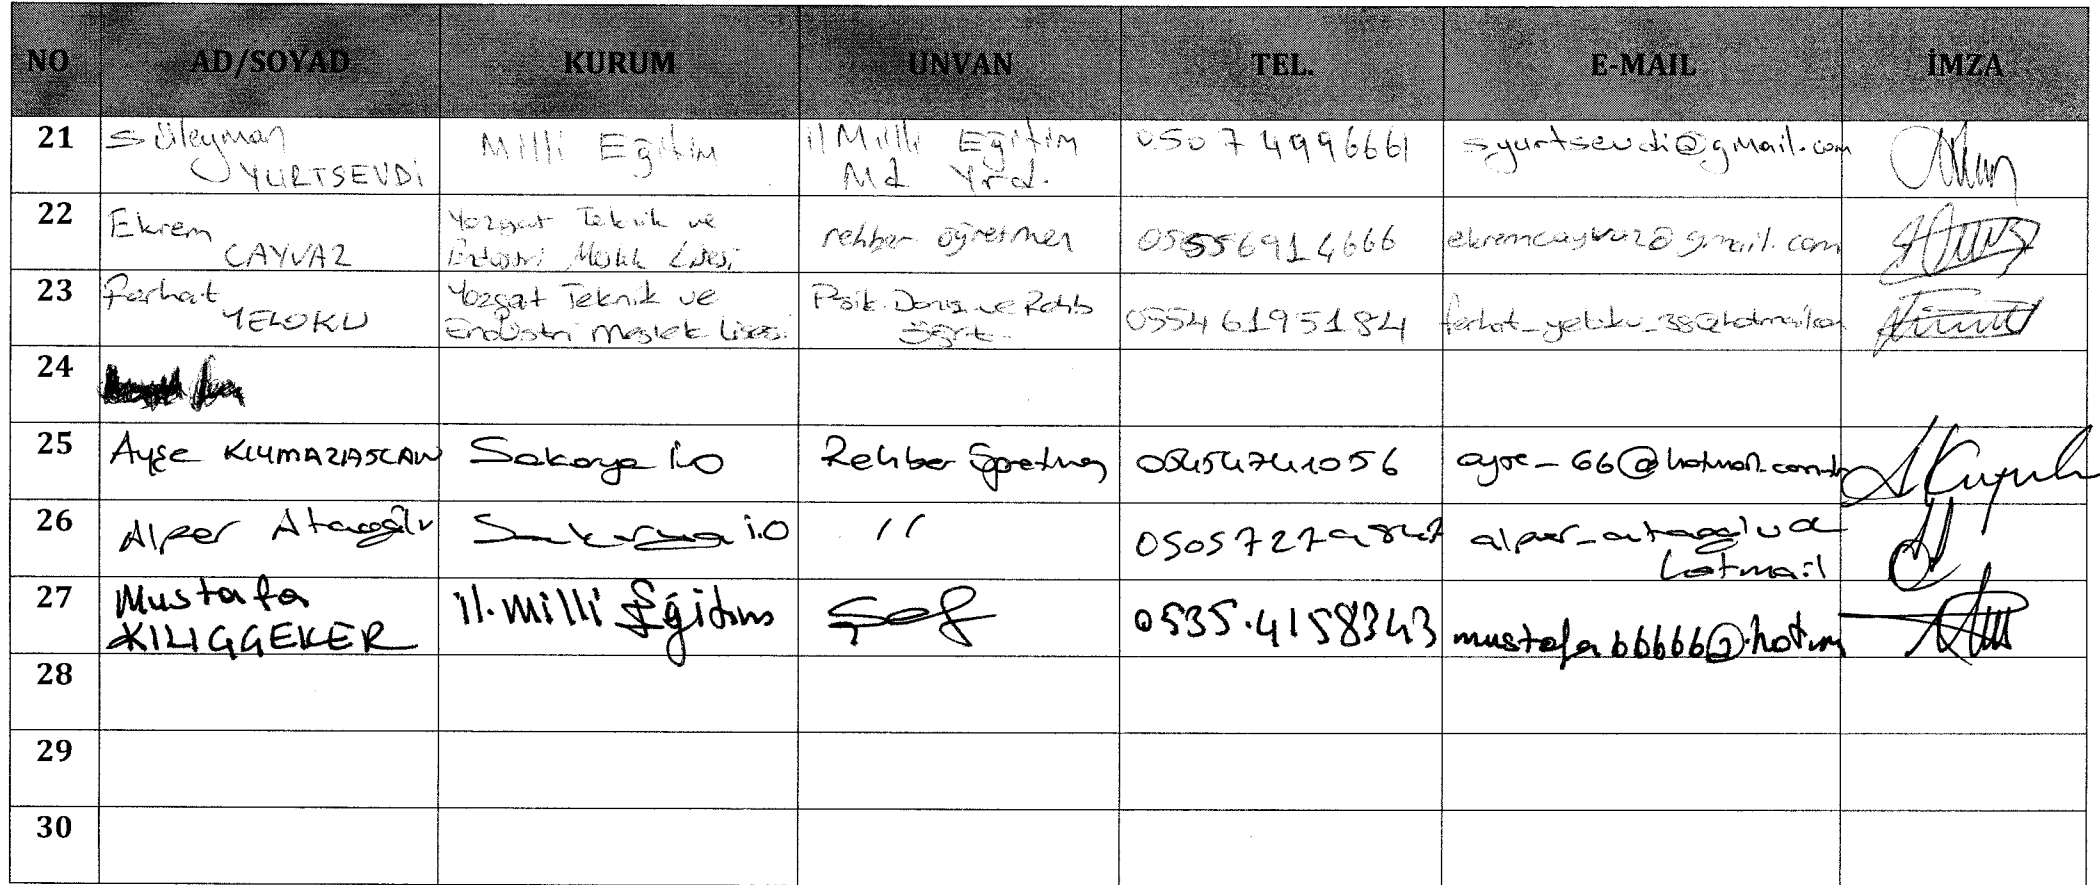 NO AD/SOYAD KURUM UNVAN TEL. E-MAIL İMZA
21 Süleyman YURTSEVDİ Milli Eğitim il Milli Eğitim Md. Yrd. 0507 4996661 syurtsevdi@gmail.com
22 Ekrem CAYVAZ Yozgat Teknik ve Endüstri Meslek Lisesi rehber öğretmen 05556914666 ekremcayvaz@gmail.com
23 Ferhat YELOKU Yozgat Teknik ve Endüstri Meslek Lisesi Psik. Danış ve Rehb Öğrt. 05546195184
24
25 Ayşe Sakarya İ.O Rehber Öğretmen 05454741056
26 Alper Ataoğlu Sakarya i.O " alper_ataoglu@ hotmail
27 Mustafa KILIÇÇEKER il. Milli Eğitim Şef 0535.4158343 mustafa66666@hotm
28
29
30